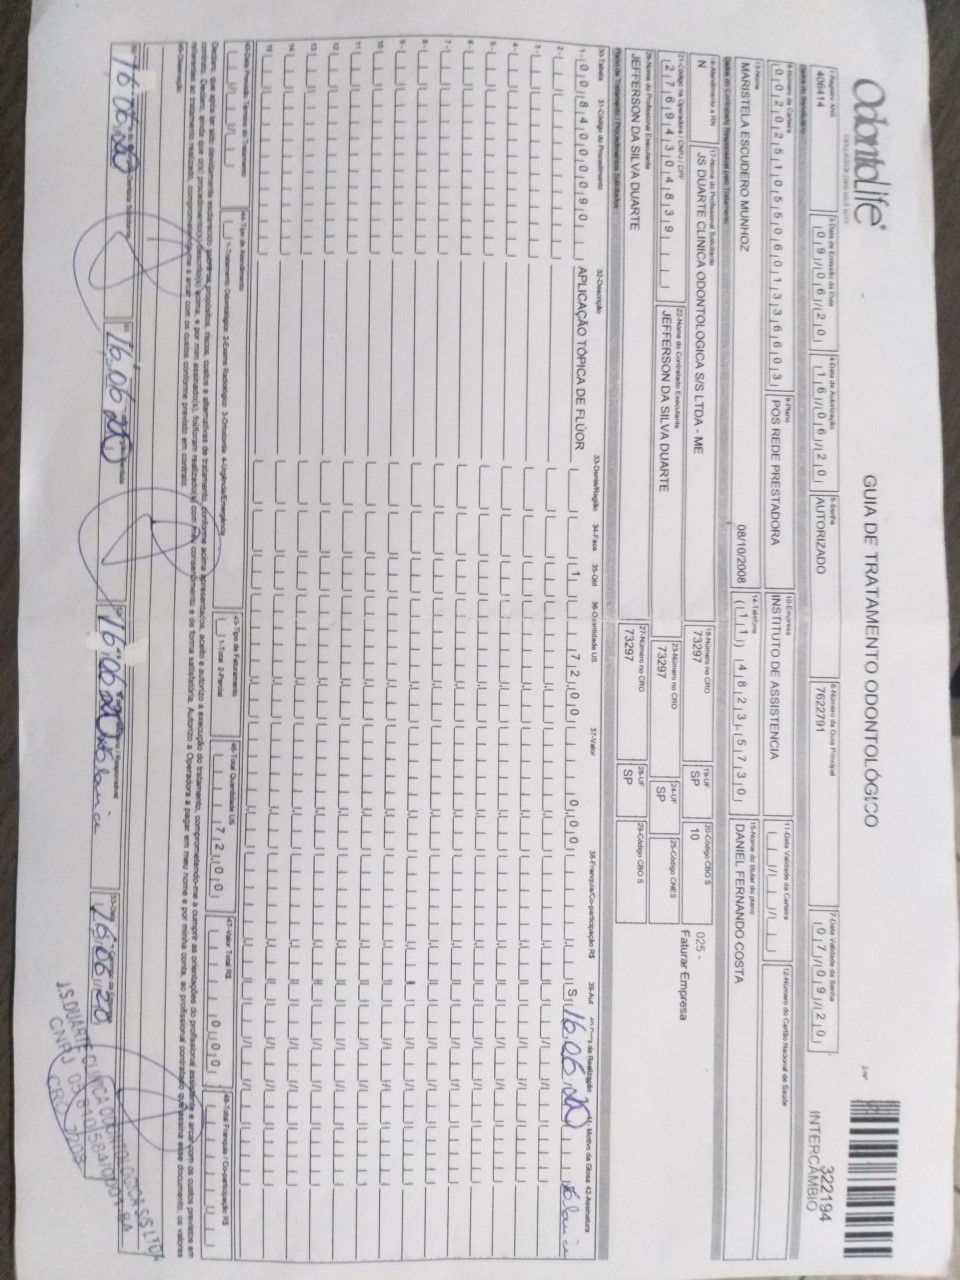 OdontoLife
GUIA DE TRATAMENTO ODONTOLÓGICO
2-Nº
322194
INTERCÂMBIO
1-Registro ANS
406414
3-Data de Emissão da Guia
09/06/20
4-Data de Autorização
16/06/20
5-Senha
AUTORIZADO
6-Número da Guia Principal
7622791
7-Data Validade da Senha
07/09/20
Dados do Beneficiário
8-Número da Carteira
00202510550601336603
9-Plano
POS REDE PRESTADORA
10-Empresa
INSTITUTO DE ASSISTENCIA
11-Data Validade da Carteira
12-Número do Cartão Nacional de Saúde
13-Nome
MARISTELA ESCUDERO MUNHOZ
08/10/2008
14-Telefone
(11) 4823-5730
15-Nome do titular do plano
DANIEL FERNANDO COSTA
Dados do Contratado Responsável pelo Tratamento
16-Atendimento a RN
N
17-Nome do Profissional Solicitante
JS DUARTE CLINICA ODONTOLOGICA S/S LTDA - ME
18-Número no CRO
73297
19-UF
SP
20-Código CBO S
10
025 -
Faturar Empresa
21-Código na Operadora / CNPJ / CPF
27694304839
22-Nome do Contratado Executante
JEFFERSON DA SILVA DUARTE
23-Número no CRO
73297
24-UF
SP
25-Código CNES
26-Nome do Profissional Executante
JEFFERSON DA SILVA DUARTE
27-Número no CRO
73297
28-UF
SP
29-Código CBO S
Plano de Tratamento / Procedimentos Solicitados
30-Tabela 31-Código do Procedimento 32-Descrição 33-Dente/Região 34-Face 35-Qtd 36-Quantidade US 37-Valor 38-Franquia/Co-participação R$ 39-Aut 40-Data de Realização 41-Motivo da Glosa 42-Assinatura
1- 00 84000090 APLICAÇÃO TÓPICA DE FLÚOR 1 72,00 0,00 S 16.06.20
2-
3-
4-
5-
6-
7-
8-
9-
10
11
12
13
14
15
43-Data Prevista Término do Tratamento
44-Tipo de Atendimento
1-Tratamento Odontológico 2-Exame Radiológico 3-Ortodontia 4-Urgência/Emergência
45-Tipo de Faturamento
1-Total 2-Parcial
46-Total Quantidade US
72,00
47-Valor Total R$
0,00
48-Total Franquia / Co-participação R$
Declaro, que após ter sido devidamente esclarecido sobre os propósitos, riscos, custos e alternativas de tratamento, conforme acima apresentados, aceito e autorizo a execução do tratamento, comprometendo-me a cumprir as orientações do profissional assistente e arcar com os custos previstos em
contrato. Declaro, ainda que o(s) procedimento(s) descrito(s) acima, e por mim assinado(s), foi/foram realizado(s) com meu consentimento e de forma satisfatória. Autorizo a Operadora a pagar em meu nome e por minha conta, ao profissional contratado que assina esse documento, os valores
referentes ao tratamento realizado, comprometendo-me a arcar com os custos conforme previsto em contrato.
49-Observação
16.06.20
16.06.20
16.06.20
16.06.20
J.S.DUARTE CLINICA ODONTOLOGICA S/S LTDA